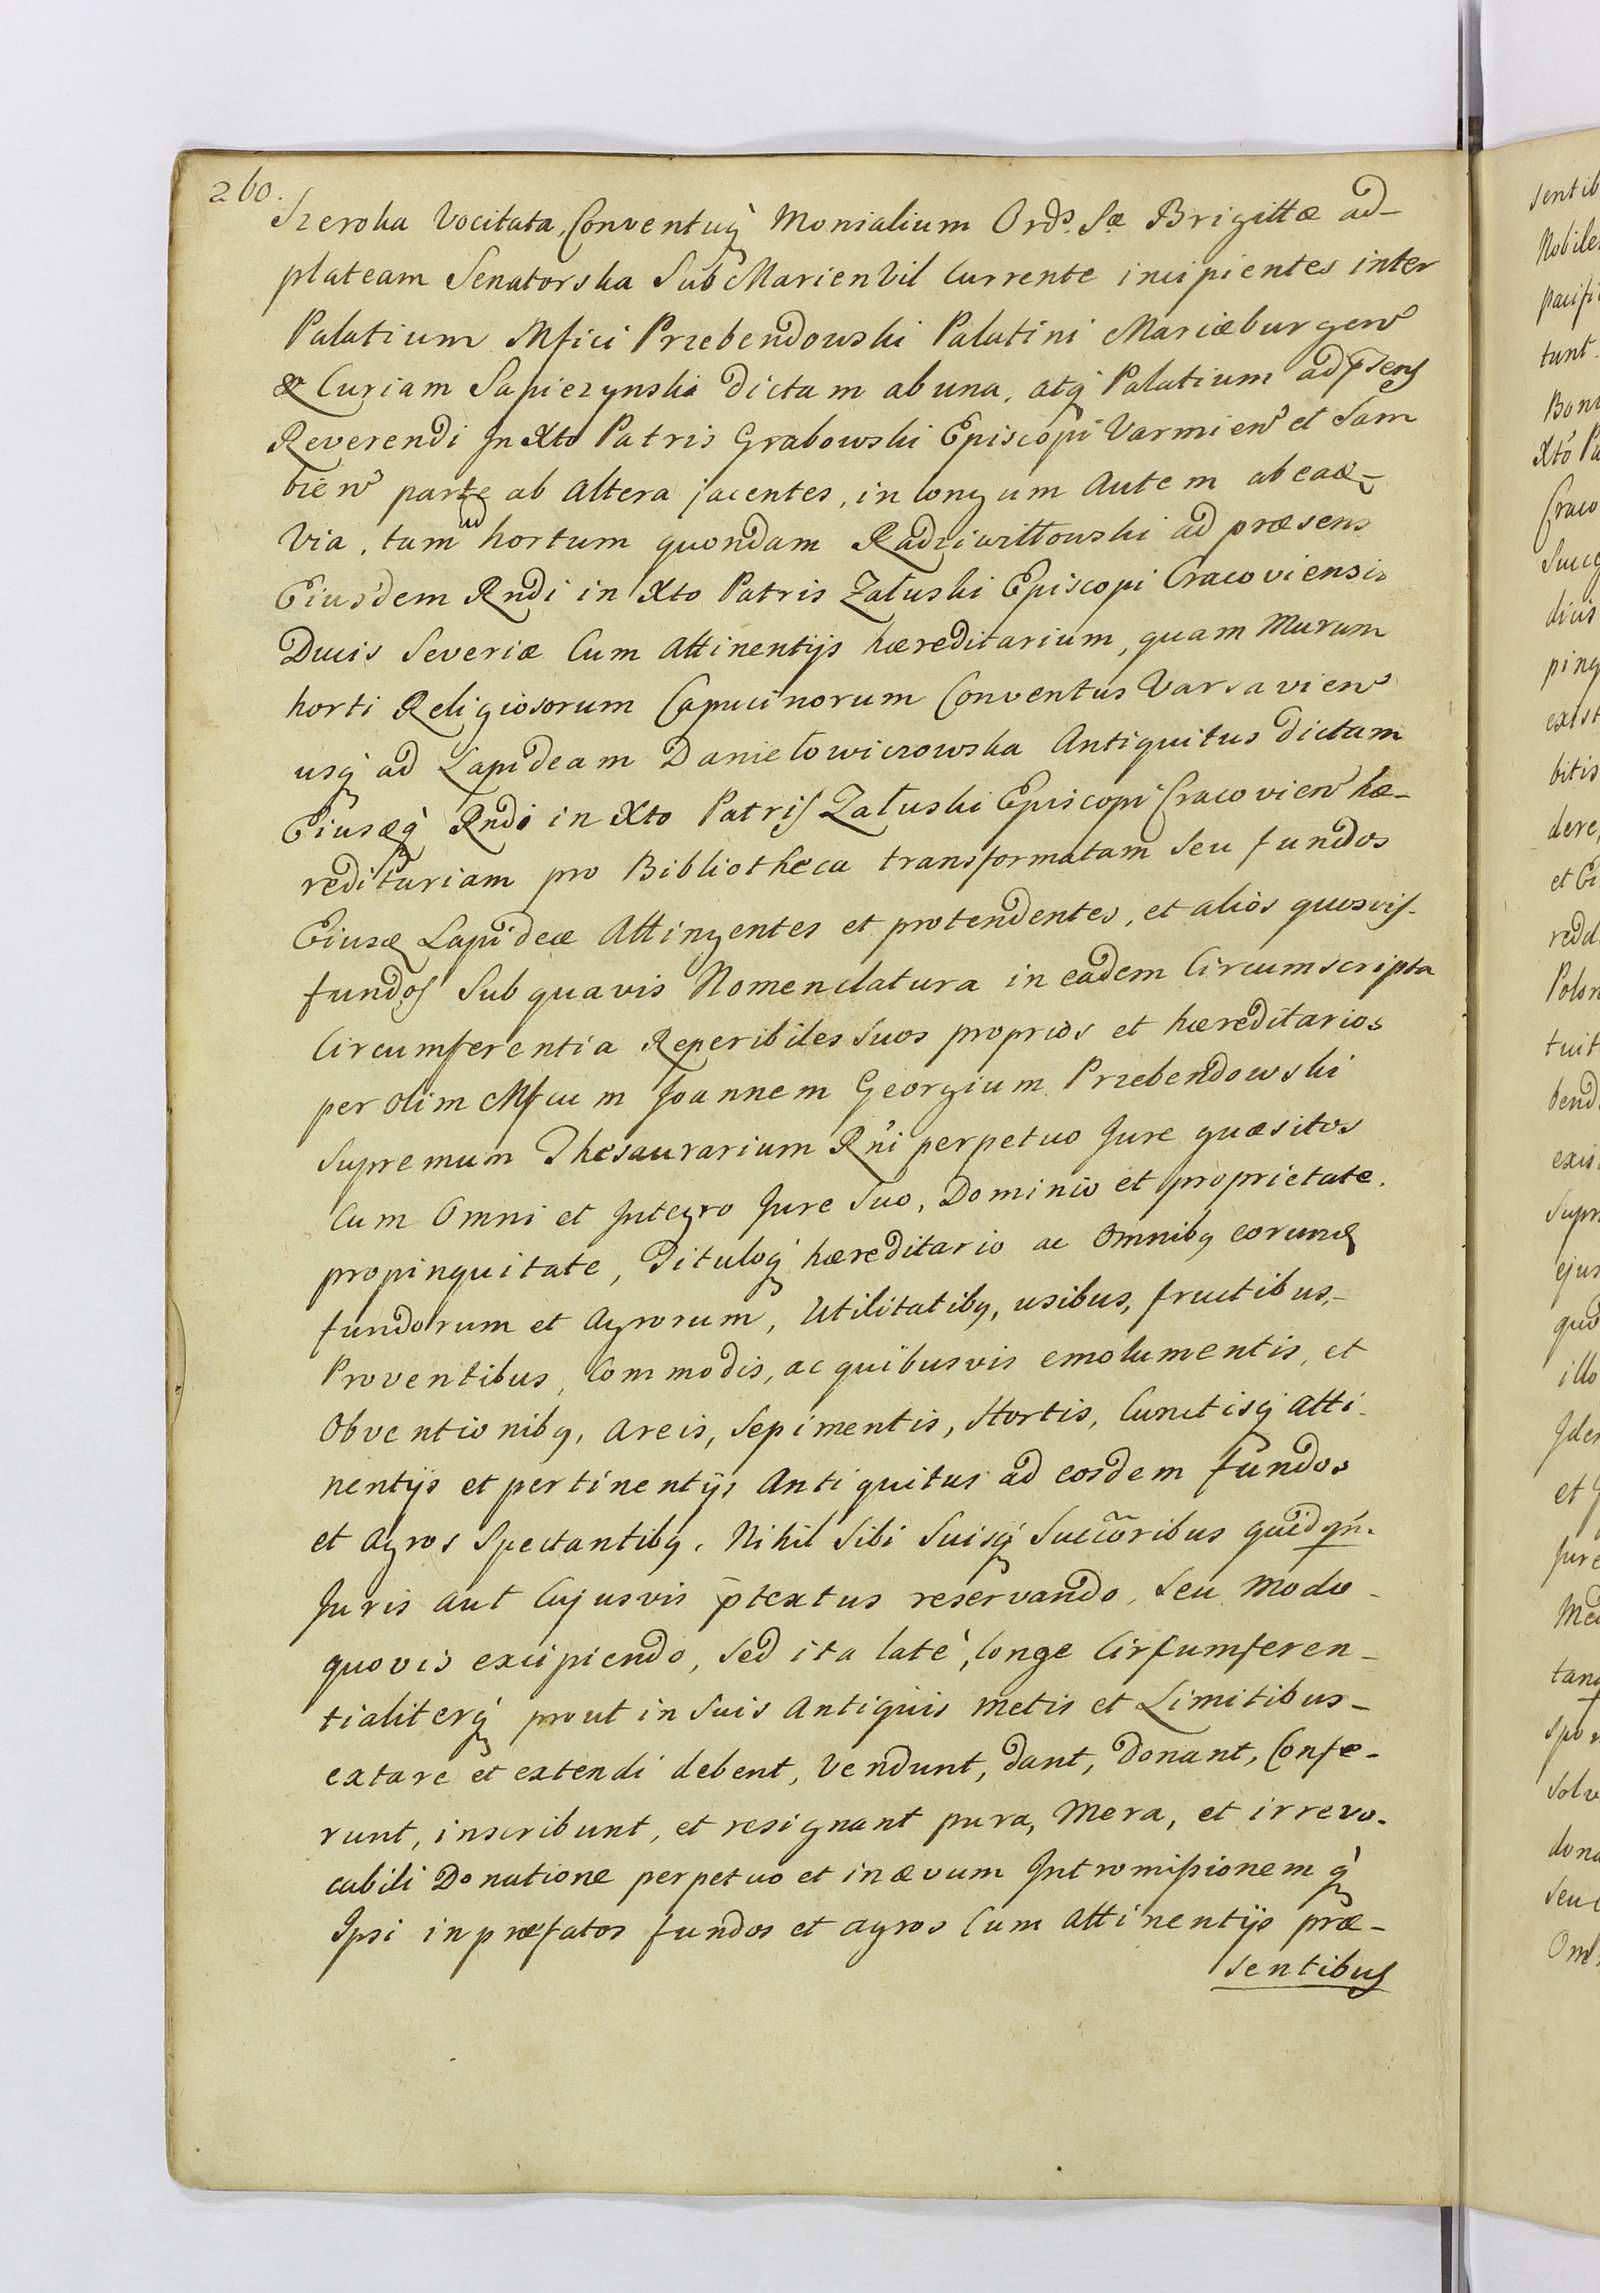 260.
Szeroka Vocitata, Conventuq̀ Monialium Ordſ. Sæ Brigittæ ad-
plateam Senatorska Sub Marienvil Currente incipientes inter
Palatium Mfici Przebendowski Palatini Mariæburgen̄
& Curiam Sapiezynski dictam ab una, atq̀ Palatium ad p̄sens
Reverendi In Xto Patris Grabowski Episcopi Varmien̄ et Sam
bien̄ parte ab altera jacentes, in longum autem ab eadē
Via, tam ad hortum quondam Radziwiłłowski ad præsens
Eiusdem Rndi in Xto Patris Załuski Episcopi Cracoviensis
Ducis Severiæ Cum Attinentijs hæreditarium, quam Murum
horti Religiosorum Capucinorum Conventus Varsavien̄
usq̀ ad Lapideam Daniełowiczowska Antiquitus dictam
Eiusdēq̀ Rndi in Xto Patris Załuski Episcopi Cracovien̄ hæ-
reditariam pro Bibliotheca transformatam seu fundos
Eiusdē Lapideæ Attingentes et protendentes, et aliòs quosvis-
fundos Sub quavis Nomenclatura in eadem Circumscripta
Circumferentia Reperibiles Suos propriòs et hæreditarios
per olim Mfcum Joannem Georgium Przebendowski
Supremum Thesaurarium Rn̄i perpetuo Jure quæsitos
Cum Omni et Integro Jure Suo, Dominio et proprietate.
propinquitate, Tituloq̀ hæreditario ac Omnibq eorund̄
fundorum et Agrorum, Utilitatibq, usibus, fructibus,-
Proventibus, Commodis, ac quibusvis emolumentis, et
Obventionibq, Areis, Sepimentis, Hortis, Cunctisq̀ Atti-
nentijs et pertinentijs Antiquitus ad eosdem fundos
et Agros Spectantibq. Nihil Sibi Suisq̀ Succōribus quidqn̄.
Juris aut Cujusvis p̄textus reservando, Seu Modo-
quovis excipiendo, Sed ita latè, longe Circumferen-
tialiterq̀ prout in Suis Antiquis Metis et Limitibus-
extare et extendi debent, Vendunt, dant, Donant, Confe-
runt, inscribunt, et resignant pura, Mera, et irrevo-
cabili Donatione perpetuo et in ævum Intromissionem q̀
Ipsi in præfatos fundos et agros Cum Attinentijs præ-
sentibus
sentib
Nobile
pacifi
tunt.
Xtó Pa
Craco
pinq
exist
bitis
dere,
redd
Polon
tuit
bend
exis
Supr
ejus
quo
illo
Jure
dona